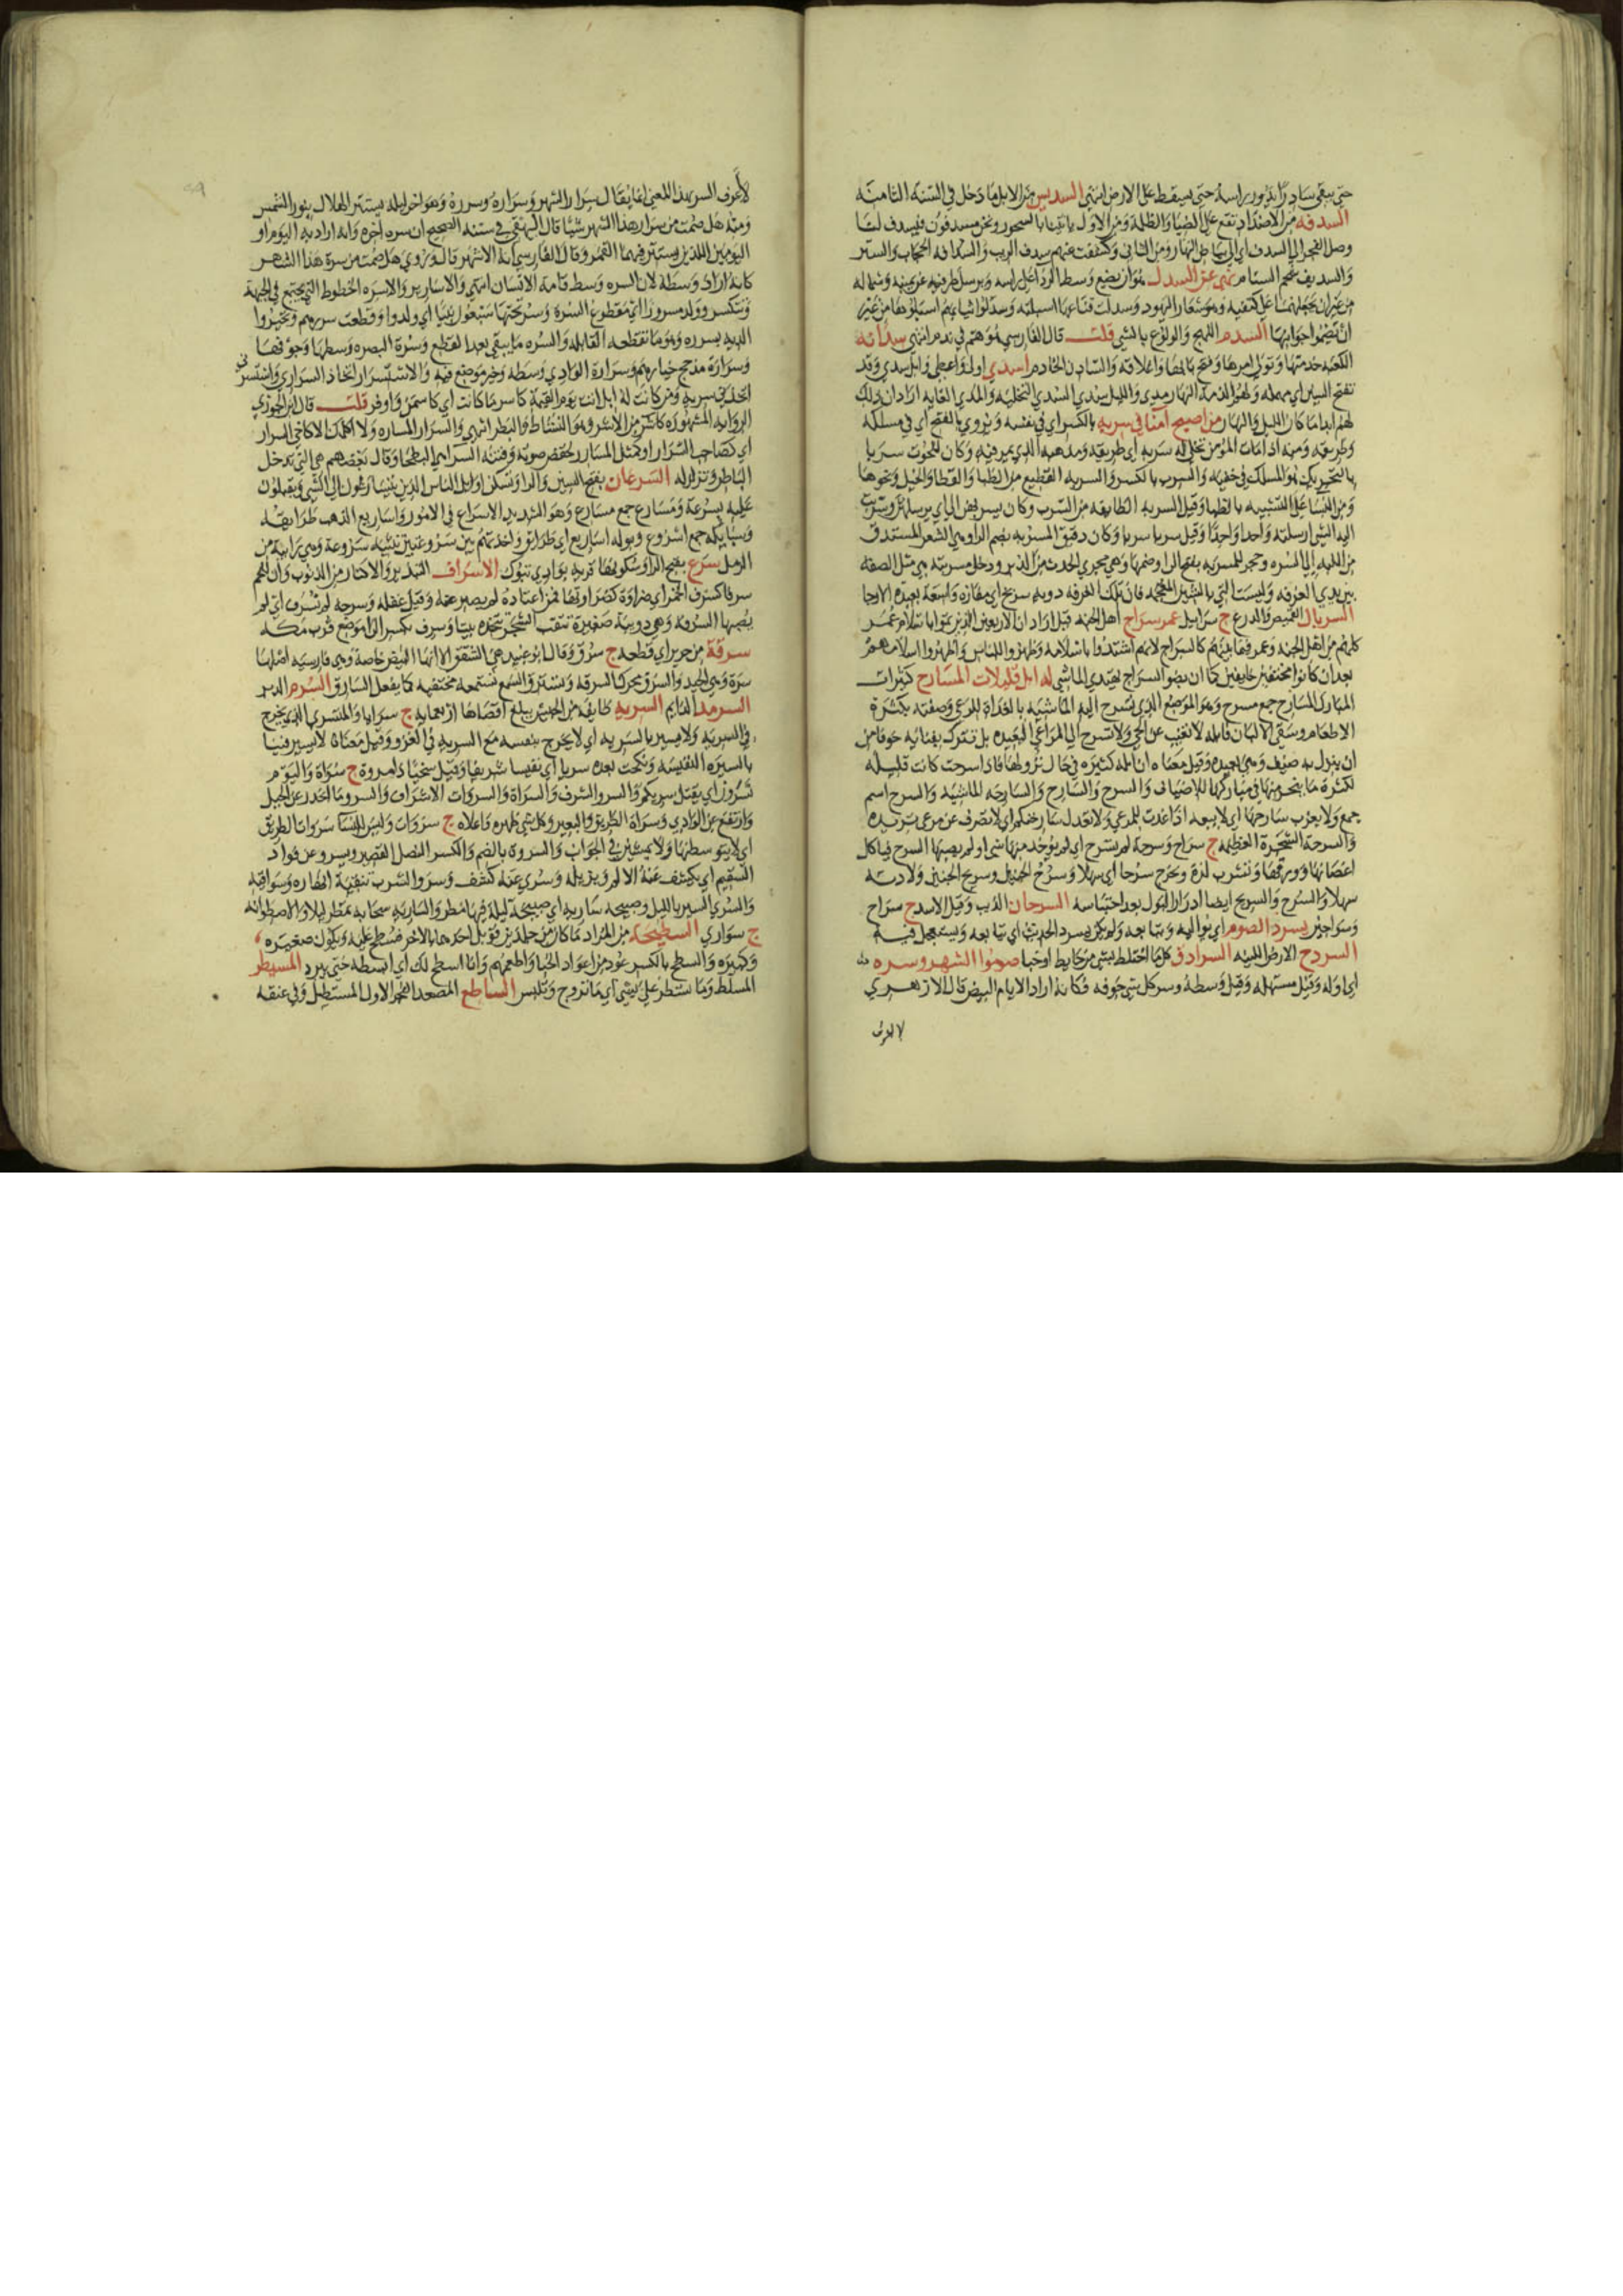 حتى يبقى سادرا يدور براسه حتى يسقط على الارض انتهى السديس من الابل ما دخل في السنة الثامنة
السدفه من الاضداد تقع على الضيا والظلمة ومن الاول يا تينا بالسحور ونحن مسدفون فيسدف لنا
وصل الفجر الى السدف اي الى بياض النهار ومن الثاني وكشفت عنهم سدف الريب والسدافه الحجاب والستر
والسديف شحم السنام نهى عن السدل هو ان يضع وسط الردا على راسه ويرسل طرفيه عن يمينه وشماله
من غير ان يجعلهما على كتفيه وهو شعار اليهود وسدلت قناعها اسبلته وسدلوا ثيابهم اسبلوها من غير
ان يضموا جوانبها السدم اللهج والولوع بالشي قلت قال الفارسي هو هم في ندم انتهى سدانة
الكعبه خدمتها وتولي امرها وفتح بابها واغلاقه والسادن الخادم اسدي اولى واعطى وابل سدي وقد
تفتح السين اي مهمله
لهم ابدا ما كان الليل والنهار من اصبح آمنا في سربه بالكسر اي في نفسه ويروى بالفتح اي في مسلكه
وطريقه ومنه اذا مات المؤمن تخلى له سربه اي طريقه ومذهبه الذي يمر فيه وكان للحوت سربا
بالتحريك هو المسلك في خفيه والسرب بالكسر والسربه القطيع من الظبا والقطا والخيل ونحوها
ومن النسا على التشبيه بالظبا وقيل السربه الطايفه من السرب وكان يسربهن الي اي يرسلهن وسربت
اليه الشي ارسلته واحدا واحدا وقيل سربا سربا وكان دقيق المسربه بضم الرا وهي الشعر المستدق
من اللبه الى السره وحجر للمسربه بفتح الرا وضمها وهي مجرى الحدث من الدبر ودخل مسربته هي مثل الصفه
بين يدي الغرفه وليست التي بالشين المعجمه فان تلك الغرفه دويه سربخ اي مفازه واسعة بعيدة الارجا
السربال القميص والدرع ج سرابيل عمر سراج اهل الجنه قيل اراد ان الاربعين الذين تموا باسلام عمر
كلهم من اهل الجنه وعمر فيما بينهم كالسراج لانهم اشتدوا باسلامه وظهروا للناس واظهروا اسلامهم
بعد ان كانوا مختفين خايفين كما ان بضو السراج يهتدي الماشي له ابل قليلات المسارح كثيرات
المبارك المسارح جمع مسرح وهو الموضع الذي تسرح اليه الماشيه بالغداة للرعي وصفته بكثرة
الاطعام وسقي الالبان فابله لا تغيب عن الحي ولا تسرح الى المراعي البعيده بل تترك بفنائه خوفا من
ان ينزل به ضيف وهي بعيده وقيل معناه ان ابله كثيره في حال نزولها فاذا سرحت كانت قليله
لكثرة ما ينحر منها في مباركها للاضياف والسرح والسارح والسارحه الماشيه والسرح اسم
جمع ولا يعزب سارحها اي لا يبعد اذا غدت للمرعى ولا تعدل سارحتكم اي لا تصرف عن مرعى تريده
والسرحة الشجرة العظيمه ج سراح وسرحة لم تسرح اي لم يؤخذ منها شي او لم يصبها السرح فياكل
اغصانها وورقها وتشرب لذة وتخرج سرحا اي سهلا وسرح الجنين وسريح الجنين ولادته
سهلا والسرح والسريح ايضا ادرار البول بعد احتباسه السرحان الذيب وقيل الاسد ج سراح
وسراحين يسرد الصوم اي يواليه ويتابعه ولم يكن يسرد الحديث اي يتابعه ويستعجل فيه
السردح الارض اللينه السرادق كل ما احتاط بشي من حايط او خبا صوموا الشهر وسره
اي اوله وقيل مستهله وقيل وسطه وسر كل شي جوفه فكانه اراد الايام البيض قال الازهري
لا اعرف
لا اعرف السر بهذا المعنى انما يقال سرار الشهر وسراره وسرره وهو اخر ليله يستتر الهلال بنور الشمس
ومنه هل صمت من سرار هذا الشهر شيئا قال البيهقي في سننه الصحيح ان سره اخره وانه اراد به اليوم او
اليومين اللذين يستتر فيهما القمر وقال الفارسي انه الاشهر قال وروي هل صمت من سرة هذا الشهر
كانه اراد وسطه لان السره وسط قامة الانسان انتهى والاسارير والاسره الخطوط التي تجتمع في الجبهة
وتتكسر وولد مسرورا اي مقطوع السرة وسر تحتها سبعون نبيا اي ولدوا وقطعت سررهم
وهو ما تقطعه القابله والسره ما يبقى بعد القطع وسرة البصره وسطها وجوفها
وسرارة مذحج خيارهم وسرارة الوادي وسطه وخير موضع فيه والاستسرار اتخاذ السراري واستسرني
اتخذني سرية ومن كانت له ابل اتت يوم القيمة كاسر ما كانت اي كاسمن واوفر قلت قال ابن الجوزي
الروايه المشهوره كاشر من الاشر وهو النشاط والبطر انتهى والسرار المساره ولا اكلمك الا كاخي السرار
اي كصاحب السرار او كمثل المسارر لخفض صوته وفتنة السرا هي البطحا وقال بعضهم هي التي تدخل
الباطن وتزلزله السرعان بفتح السين والرا وتسكن اوايل الناس الذين يتسارعون الى الشي ويقبلون
عليه بسرعة ومسارع جمع مسارع وهو الشديد الاسراع في الامور واساريع الذهب طرايقه
وسبايكه جمع اسروع وبوله اساريع اي طرائق واخذ بهم بين سروعتين تثنية سروعة وهي رابية من
الرمل سرغ بفتح الرا وسكونها قرية بوادي تبوك الاسراف التبذير والاكثار من الذنوب وان للحم
سرفا كسرف الخمر اي ضراوة كضراوتها فمن اعتاده لم يصبر عنه وقيل غفله وسرحه لم تسرف اي لم
يصبها السرفه وهي دويبة صغيرة تثقب الشجر تتخذه بيتا وسرف بكسر الرا موضع قرب مكه
سرقة من حرير اي قطعه ج سرق وقال ابو عبيد هي الشقق الا انها البيض خاصة وهي فارسيه اصلها
سره وهي الجيد والسرق محركا السرقه وتسترق السمع تستمعه مختفيه كما يفعل السارق السرم الدبر
السرمد الدايم السريه طايفه من الجيش يبلغ اقصاها اربعمايه ج سرايا والمتسري الذي يخرج
في السريه ولا يسير بالسريه اي لا يخرج بنفسه مع السريه في الغزو وقيل معناه لا يسير فينا
بالسيره النفيسه ونكحت بعده سريا اي نفيسا شريفا وقيل سخيا ذا مروة ج سراة واليوم
تسرون اي يقتل سريكم والسرو الشرف والسراة والسروات الاشراف والسرو ما انحدر عن الجبل
وارتفع عن الوادي وسراة الطريق والبعير وكل شي ظهره واعلاه ج سروات وليس للنسا سروات الطريق
اي لا يتوسطنها ولا يمشين في الجوانب والسروة بالضم والكسر النصل القصير ويسرو عن فواد
السقيم اي يكشف عنه الالم ويزيله وسري عنه كشف وسرو الشرب تنقية انهاره وسواقيه
والسري السير بالليل وصبيحه ساريه اي صبيحة ليلة فيها مطر والساريه سحابه تمطر ليلا والاسطوانه
ج سواري السطيحه من المزاد ما كان من جلدين قوبل احدهما بالاخر فسطح عليه ويكون صغيره
وكبيره والسطح بالكسر عود من اعواد الخبا واطعميهم وانا اسطح لك اي ابسطه حتى يبرد المسيطر
المسلط وما تسطر علي بشي اي ما تروج وتلبس الساطع المصعد الفجر الاول المستطيل وفي عنقه